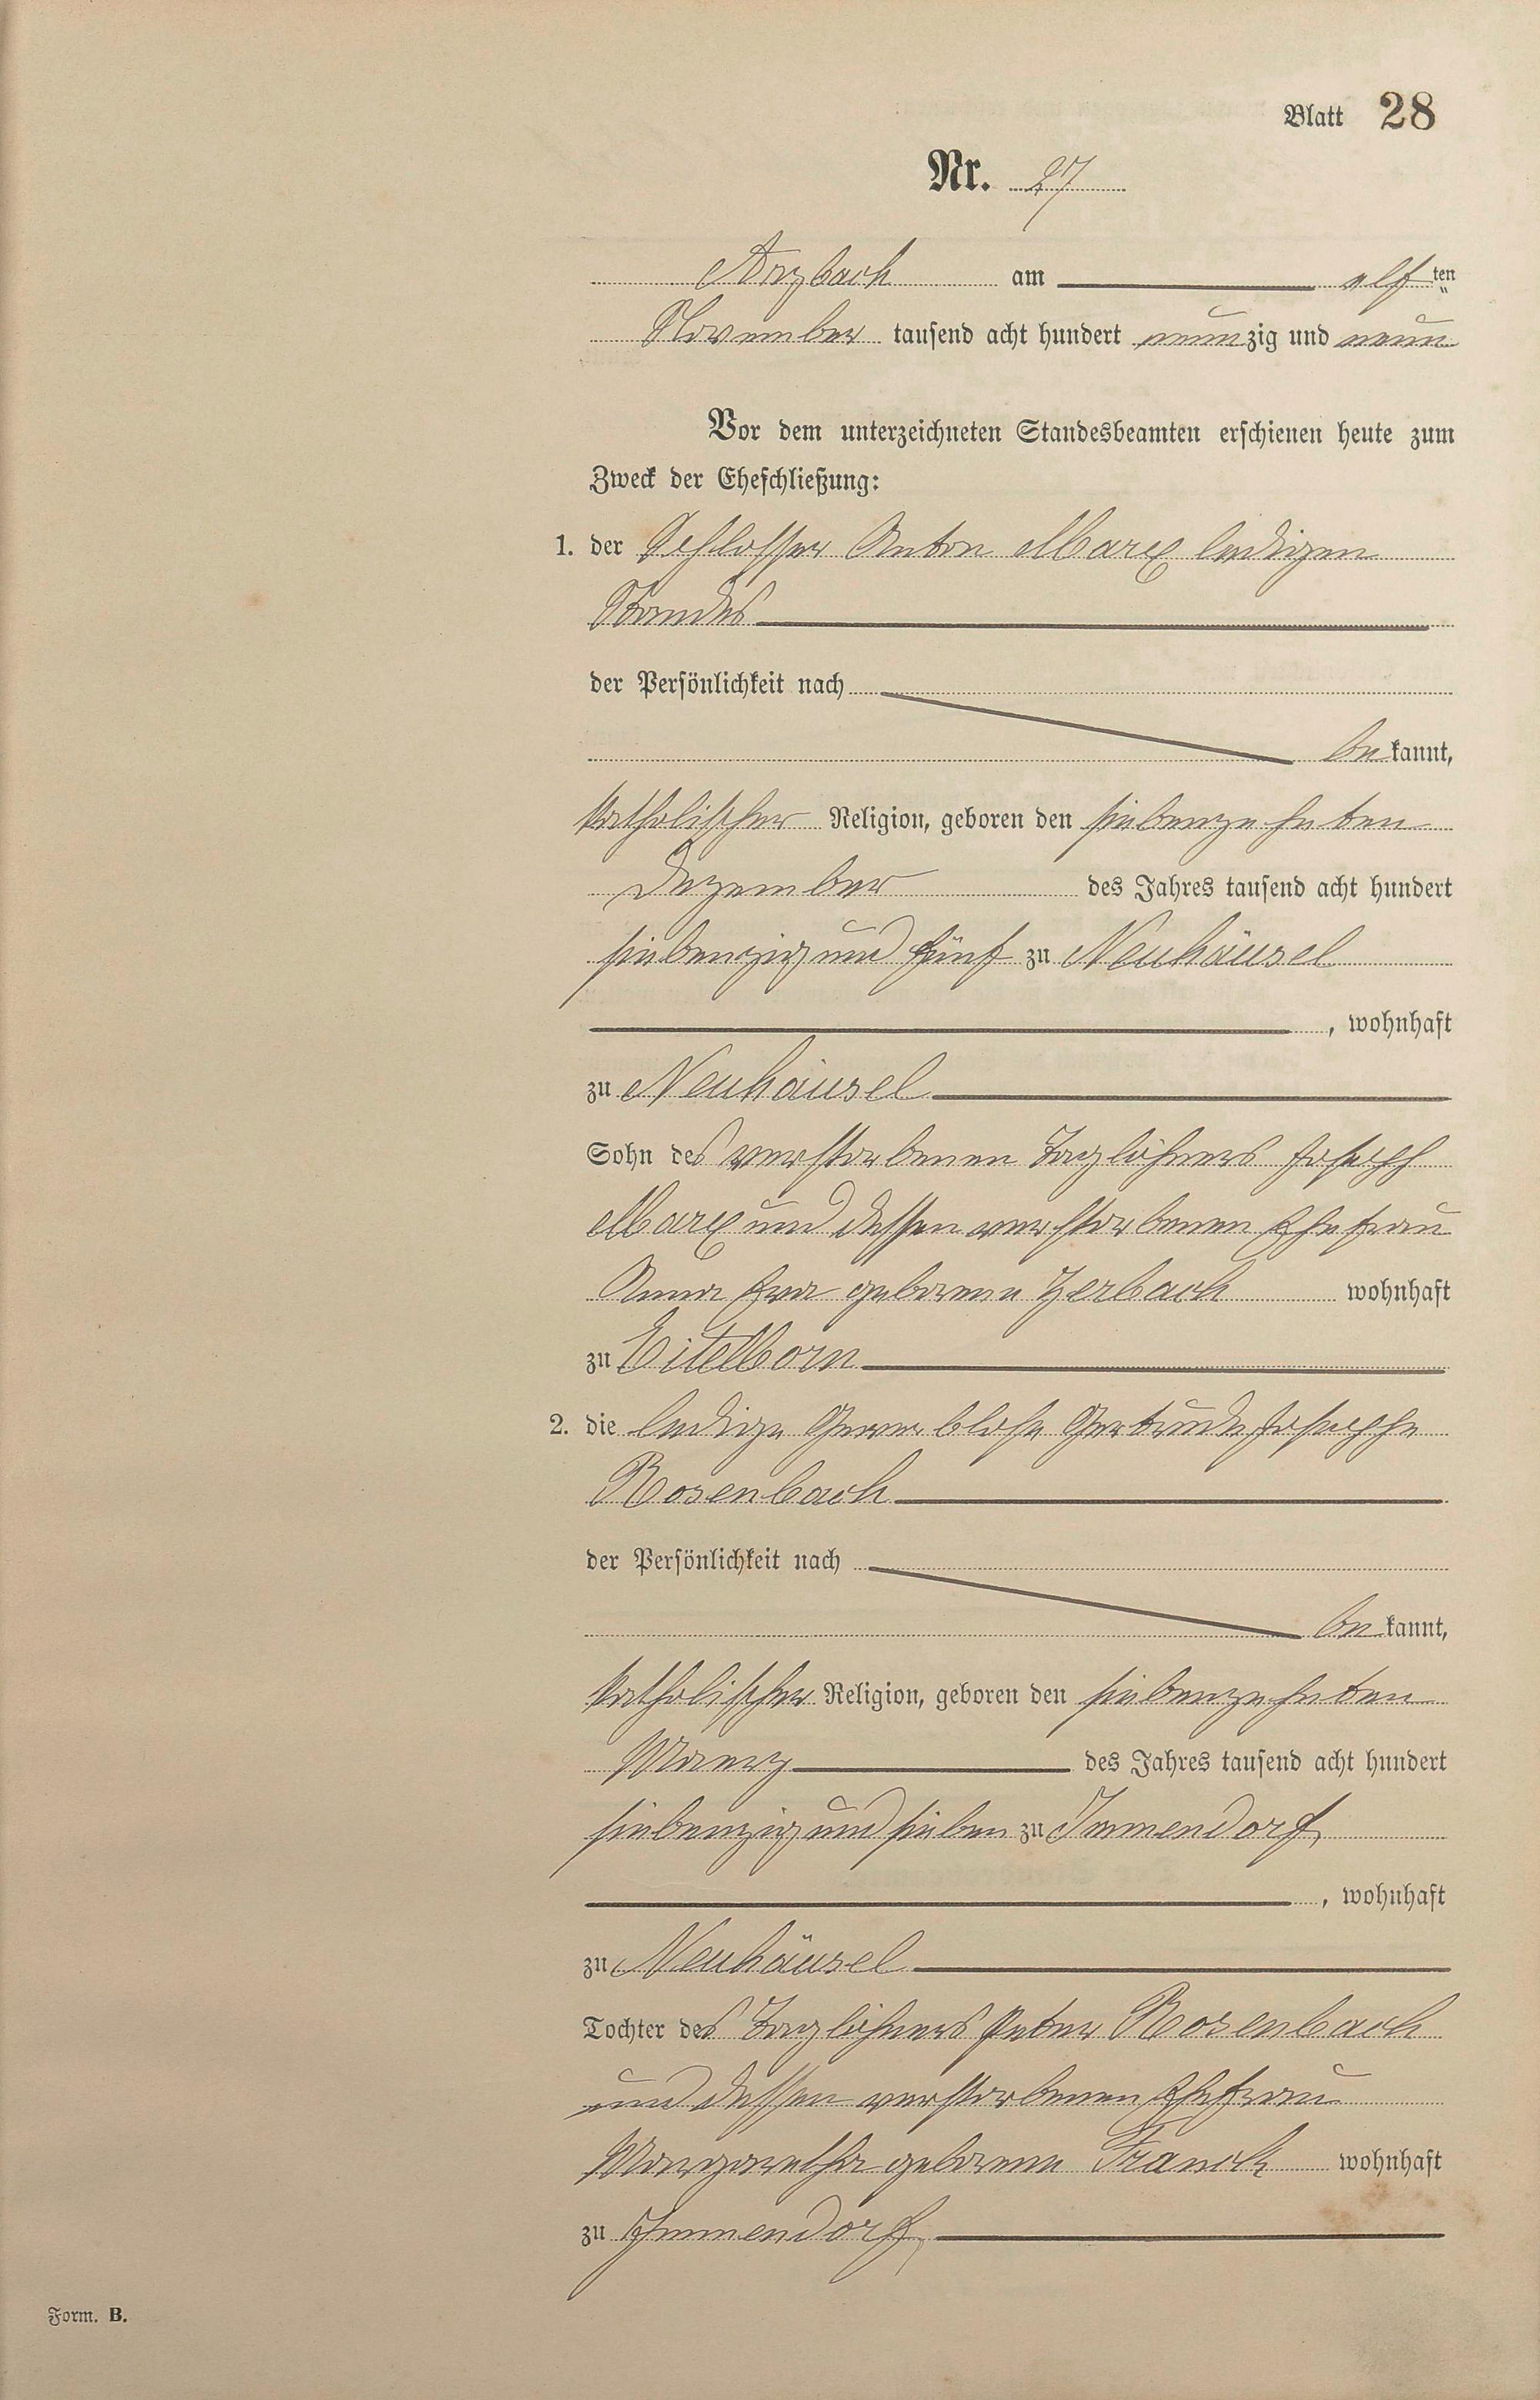 Blatt 28
Nr. 27
Arzbach am elf ten
November tausend acht hundert neunzig und neun
Vor dem unterzeichneten Standesbeamten erschienen heute zum
Zweck der Eheschließung:
1. der Schlosser Anton Marx ledigen
Standes
der Persönlichkeit nach
bekannt,
katholischer Religion, geboren den siebenzehnten
Dezember des Jahres tausend acht hundert
siebenzig und fünf zu Neuhäusel
, wohnhaft
zu Neuhäusel
Sohn des verstorbenen Taglöhners Joseph
Marx und dessen verstorbenen Ehefrau
Anna Eva geborene Zerbach wohnhaft
zu Eitelborn
2. die ledige Gewerblose Gertrude Josephe
Rosenbach
der Persönlichkeit nach
bekannt,
katholischer Religion, geboren den siebenzehnten
Maerz des Jahres tausend acht hundert
siebenzig und sieben zu Immendorf
, wohnhaft
zu Neuhäusel
Tochter des Taglöhners Peter Rosenbach
und dessen verstorbenen Ehefrau
Margaretha geborene Franck wohnhaft
zu Immendorf
Form. B.